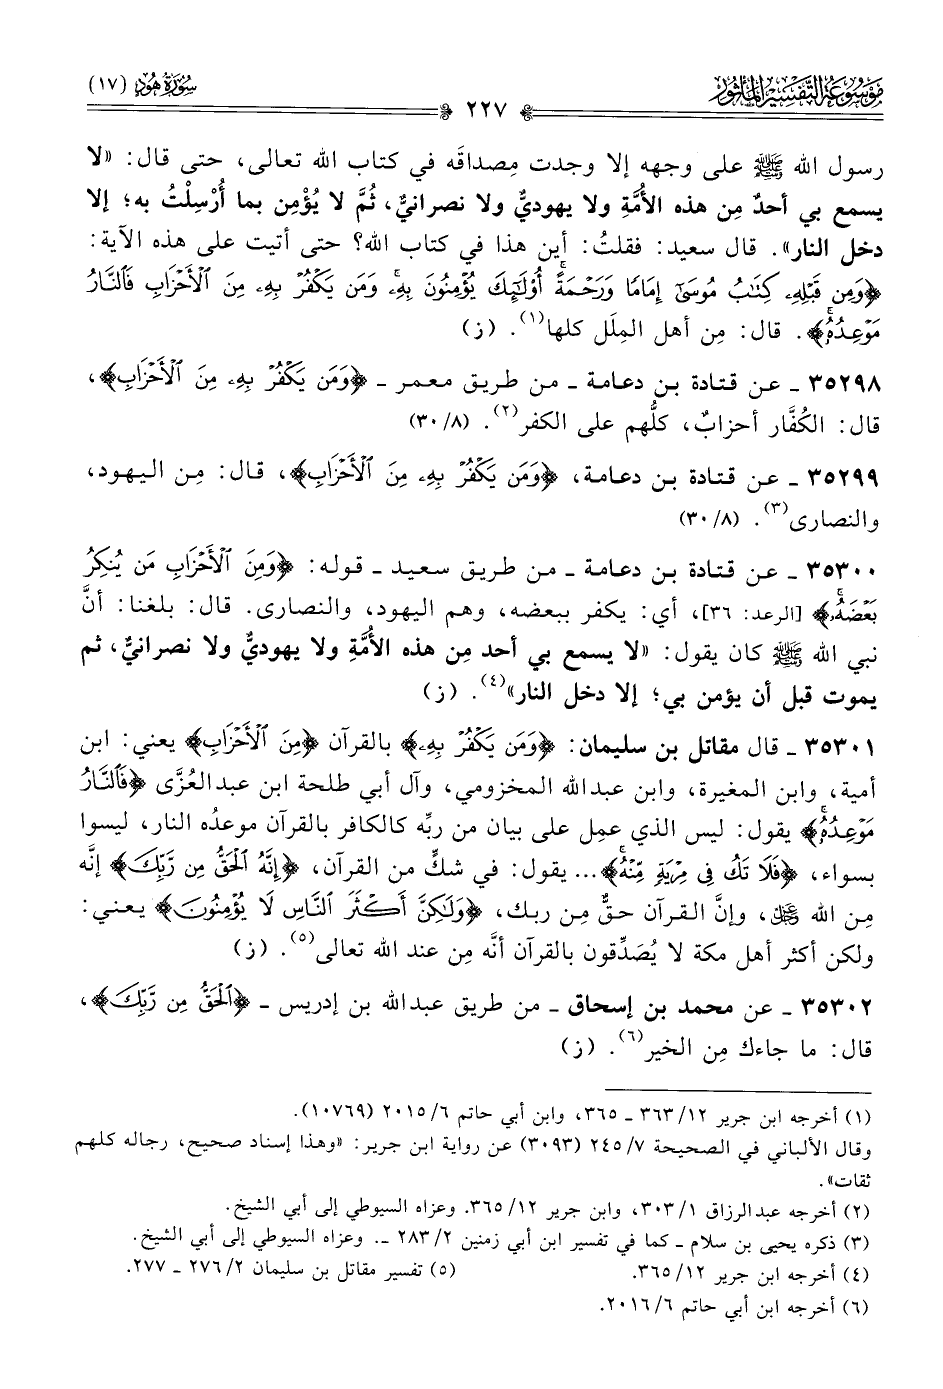 مَوْسُوعَة التَّفْسِير المَأْثُور
سُورَة هُود (١٧)
٢٢٧
رسول الله ﷺ على وجهه إلا وجدت مِصداقَه في كتاب الله تعالى، حتى قال: «لا
يسمع بي أحدٌ مِن هذه الأُمَّةِ ولا يهوديٌّ ولا نصرانيٌّ، ثُمَّ لا يُؤْمِن بما أُرْسِلْتُ به؛ إلا
دخل النار». قال سعيد: فقلتُ: أين هذا في كتاب الله؟ حتى أتيت على هذه الآية:
﴿وَمِن قَبْلِهِۦ كِتَٰبُ مُوسَىٰٓ إِمَامًا وَرَحْمَةًۚ أُوْلَٰٓئِكَ يُؤْمِنُونَ بِهِۦۚ وَمَن يَكْفُرْ بِهِۦ مِنَ ٱلْأَحْزَابِ فَٱلنَّارُ
مَوْعِدُهُۥۚ﴾. قال: مِن أهل المِلَل كلها(١). (ز)
٣٥٢٩٨ ـ عن قتادة بن دعامة ـ من طريق معمر ـ ﴿وَمَن يَكْفُرْ بِهِۦ مِنَ ٱلْأَحْزَابِ﴾،
قال: الكُفَّار أحزابٌ، كلُّهم على الكفر(٢). (٨/ ٣٠)
٣٥٢٩٩ ـ عن قتادة بن دعامة، ﴿وَمَن يَكْفُرْ بِهِۦ مِنَ ٱلْأَحْزَابِ﴾، قال: مِن اليهود،
والنصارى(٣). (٨/ ٣٠)
٣٥٣٠٠ ـ عن قتادة بن دعامة ـ من طريق سعيد ـ قوله: ﴿وَمِنَ ٱلْأَحْزَابِ مَن يُنكِرُ
بَعْضَهُۥۚ﴾ [الرعد: ٣٦]، أي: يكفر ببعضه، وهم اليهود، والنصارى. قال: بلغنا: أنَّ
نبي الله ﷺ كان يقول: «لا يسمع بي أحد مِن هذه الأُمَّةِ ولا يهوديٌّ ولا نصرانيٌّ، ثم
يموت قبل أن يؤمن بي؛ إلا دخل النار»(٤). (ز)
٣٥٣٠١ ـ قال مقاتل بن سليمان: ﴿وَمَن يَكْفُرْ بِهِۦ﴾ بالقرآن ﴿مِنَ ٱلْأَحْزَابِ﴾ يعني: ابن
أمية، وابن المغيرة، وابن عبدالله المخزومي، وآل أبي طلحة ابن عبدالعُزَّى ﴿فَٱلنَّارُ
مَوْعِدُهُۥۚ﴾ يقول: ليس الذي عمِل على بيان من ربِّه كالكافر بالقرآن موعدُه النار، ليسوا
بسواء، ﴿فَلَا تَكُ فِى مِرْيَةٍ مِّنْهُۚ﴾... يقول: في شكٍّ من القرآن، ﴿إِنَّهُ ٱلْحَقُّ مِن رَّبِّكَ﴾ إنَّه
مِن الله ﷻ، وإنَّ القرآن حقٌّ مِن ربك، ﴿وَلَٰكِنَّ أَكْثَرَ ٱلنَّاسِ لَا يُؤْمِنُونَ﴾ يعني:
ولكن أكثر أهل مكة لا يُصَدِّقون بالقرآن أنَّه مِن عند الله تعالى(٥). (ز)
٣٥٣٠٢ ـ عن محمد بن إسحاق ـ من طريق عبدالله بن إدريس ـ ﴿ٱلْحَقُّ مِن رَّبِّكَ﴾،
قال: ما جاءك مِن الخير(٦). (ز)
(١) أخرجه ابن جرير ١٢/ ٣٦٣ ـ ٣٦٥، وابن أبي حاتم ٦/ ٢٠١٥ (١٠٧٦٩).
وقال الألباني في الصحيحة ٧/ ٢٤٥ (٣٠٩٣) عن رواية ابن جرير: «وهذا إسناد صحيح، رجاله كلهم
ثقات».
(٢) أخرجه عبدالرزاق ١/ ٣٠٣، وابن جرير ١٢/ ٣٦٥. وعزاه السيوطي إلى أبي الشيخ.
(٣) ذكره يحيى بن سلام ـ كما في تفسير ابن أبي زمنين ٢/ ٢٨٣ ـ. وعزاه السيوطي إلى أبي الشيخ.
(٤) أخرجه ابن جرير ١٢/ ٣٦٥. (٥) تفسير مقاتل بن سليمان ٢/ ٢٧٦ ـ ٢٧٧.
(٦) أخرجه ابن أبي حاتم ٦/ ٢٠١٦.